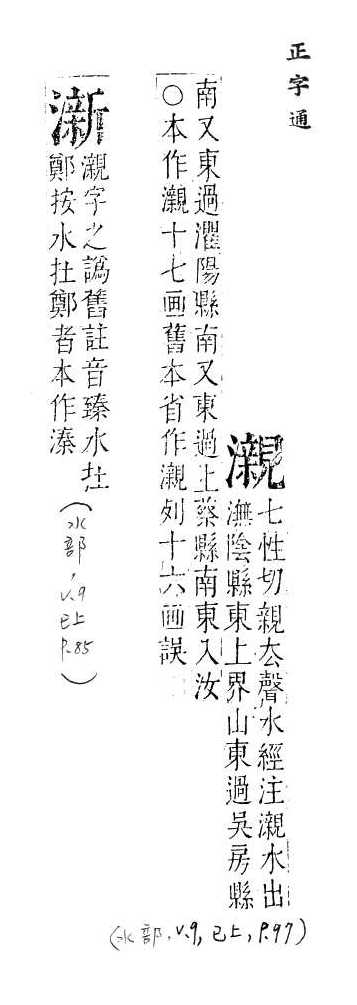 正字通
瀙
七性切親厺聲水經注瀙水出
潕陰縣東上界山東過吳房縣
南又東過灈陽縣南又東過上蔡縣南東入汝
○本作瀙十七画舊本省作瀙列十六画誤
(水部, v.9, 巳上, P.97)
澵
瀙字之譌舊註音臻水扗
鄭按水扗鄭者本作溱
(水部, v.9 巳上 P.85)